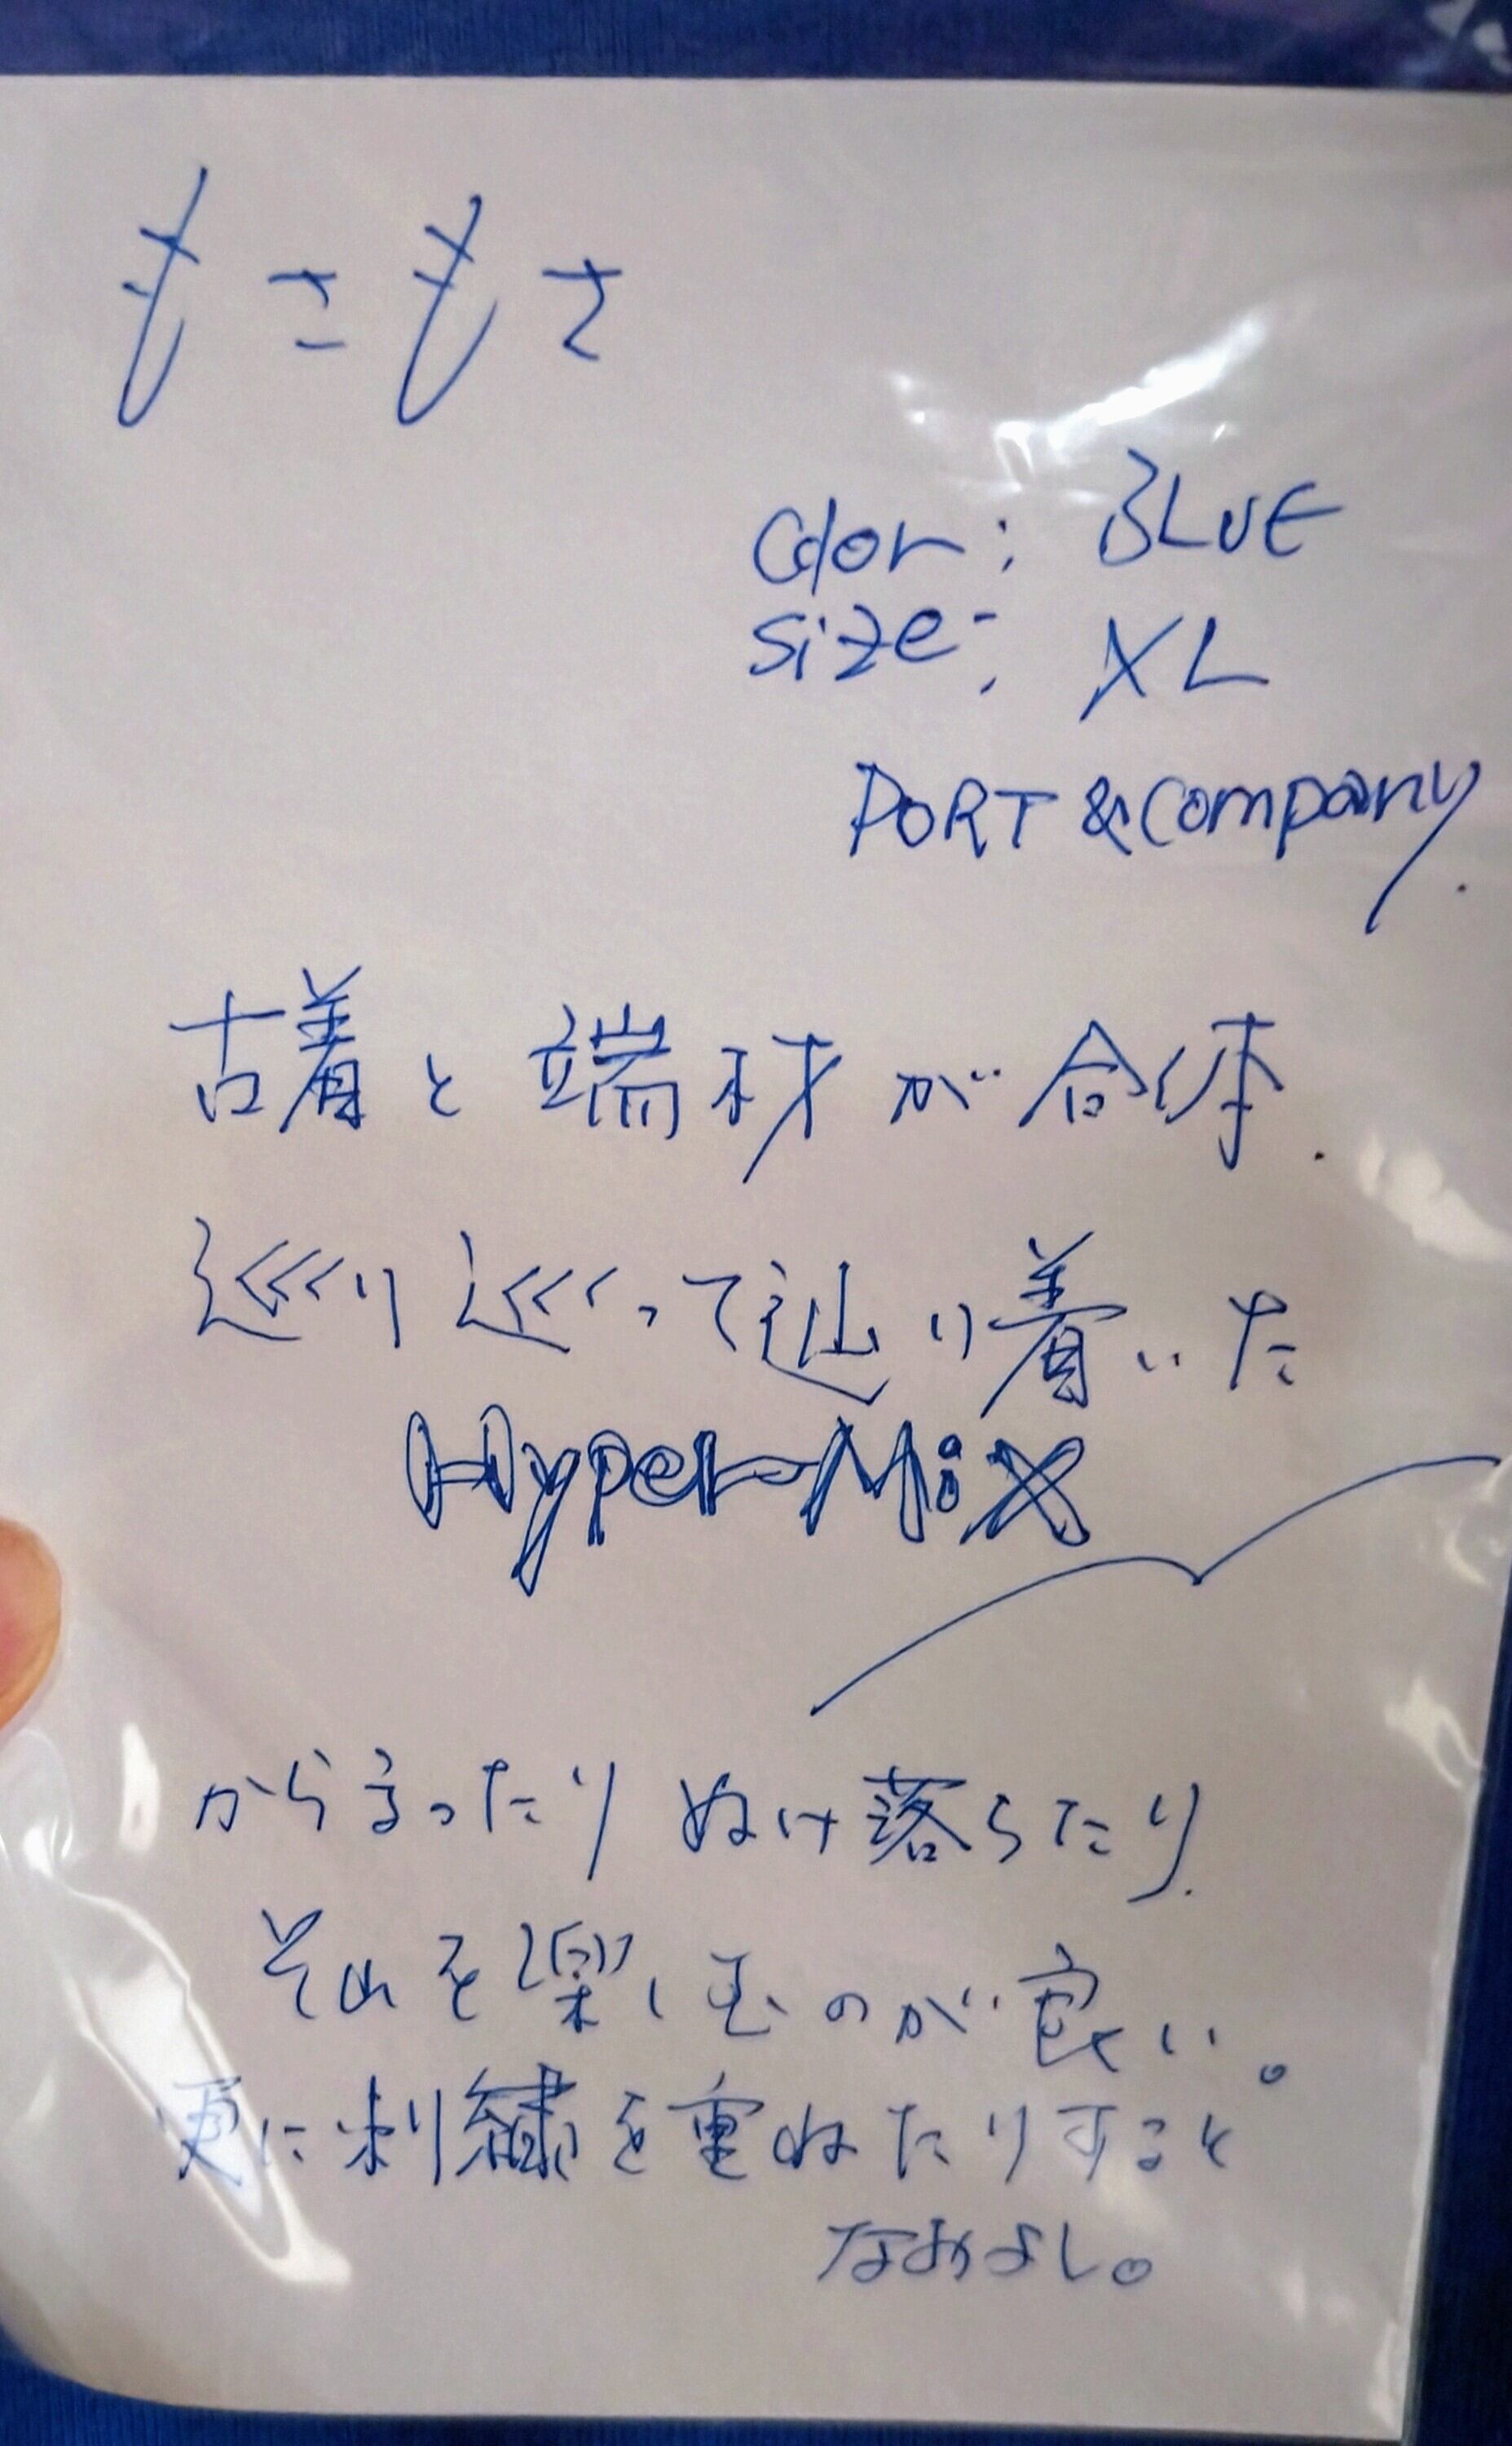 もさもさ
Color: BLUE
size: XL
PORT & Company.
古着と端材が合体.
巡り巡って辿り着いた
Hyper-Mix
からまったりぬけ落ちたり.
それを楽しむのが良い。
更に刺繍を重ねたりすること
なおよし。